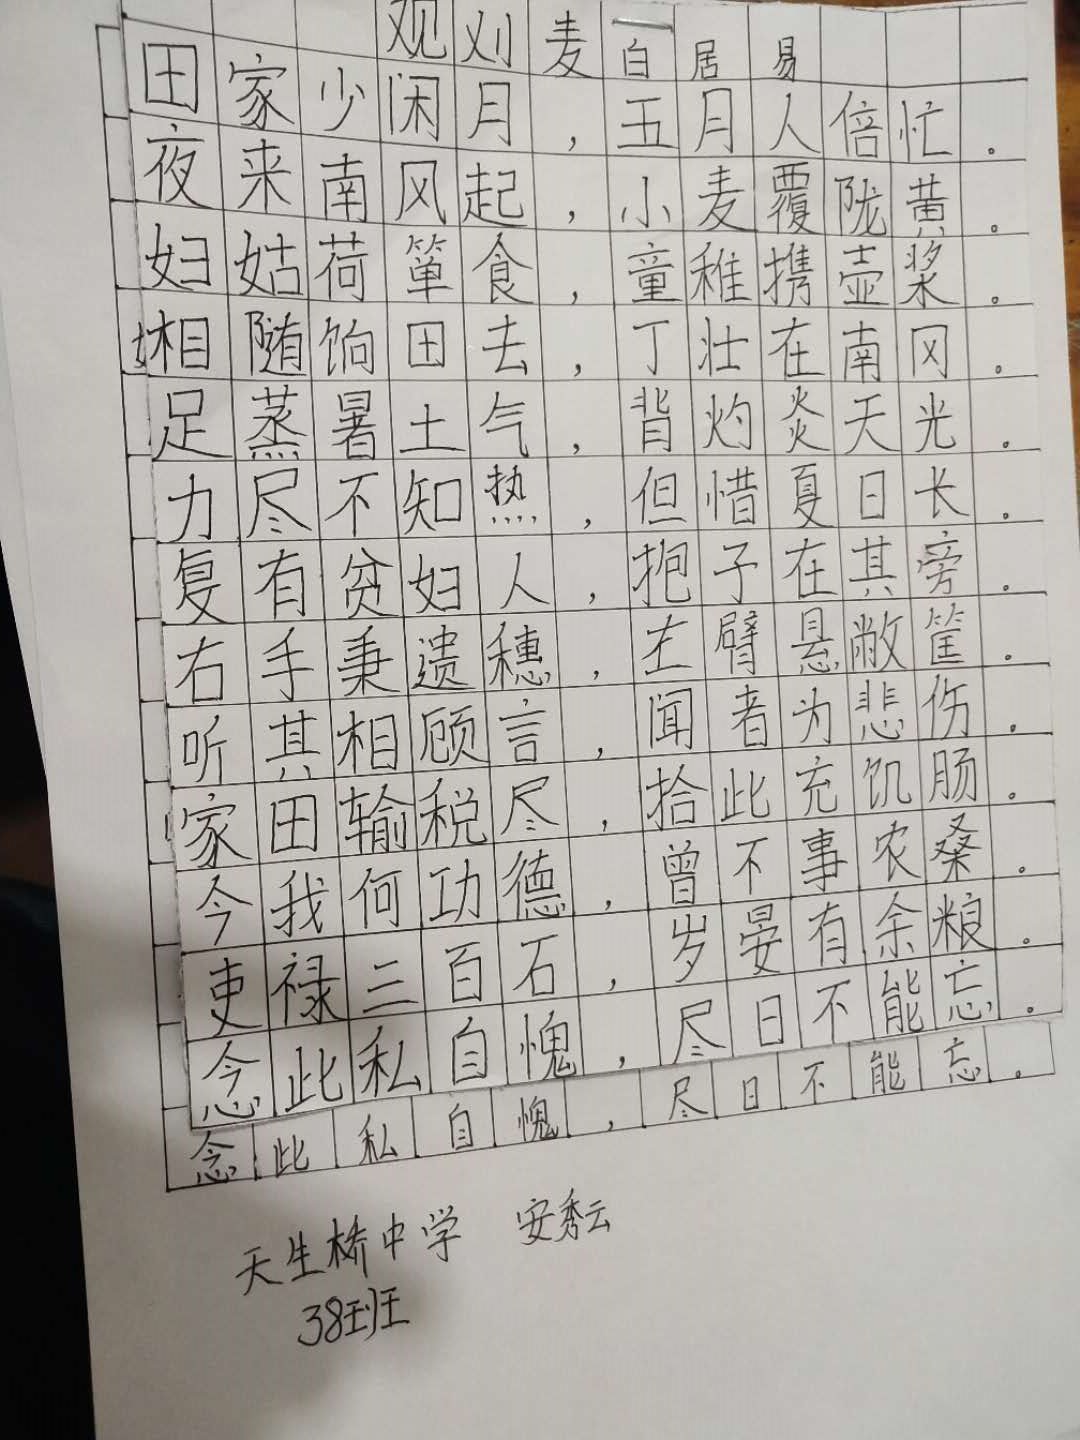 观刈麦 白居易
田家少闲月，五月人倍忙。
夜来南风起，小麦覆陇黄。
妇姑荷箪食，童稚携壶浆。
相随饷田去，丁壮在南冈。
足蒸暑土气，背灼炎天光。
力尽不知热，但惜夏日长。
复有贫妇人，抱子在其旁。
右手秉遗穗，左臂悬敝筐。
听其相顾言，闻者为悲伤。
家田输税尽，拾此充饥肠。
今我何功德，曾不事农桑。
吏禄三百石，岁晏有余粮。
念此私自愧，尽日不能忘。
念此私自愧，尽日不能忘。
天生桥中学 安秀云
38班